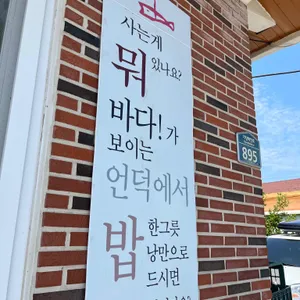 사는게
뭐 있나요?
바다!가
보이는
언덕에서
밥 한그릇
낭만으로
드시면
895